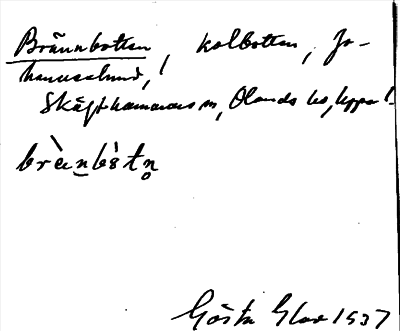 Brännbotten, kolbotten, Jo-
hanneslund,
Skäfthammars sn, Olands hd, Uppl.
Gösta Glas 1937